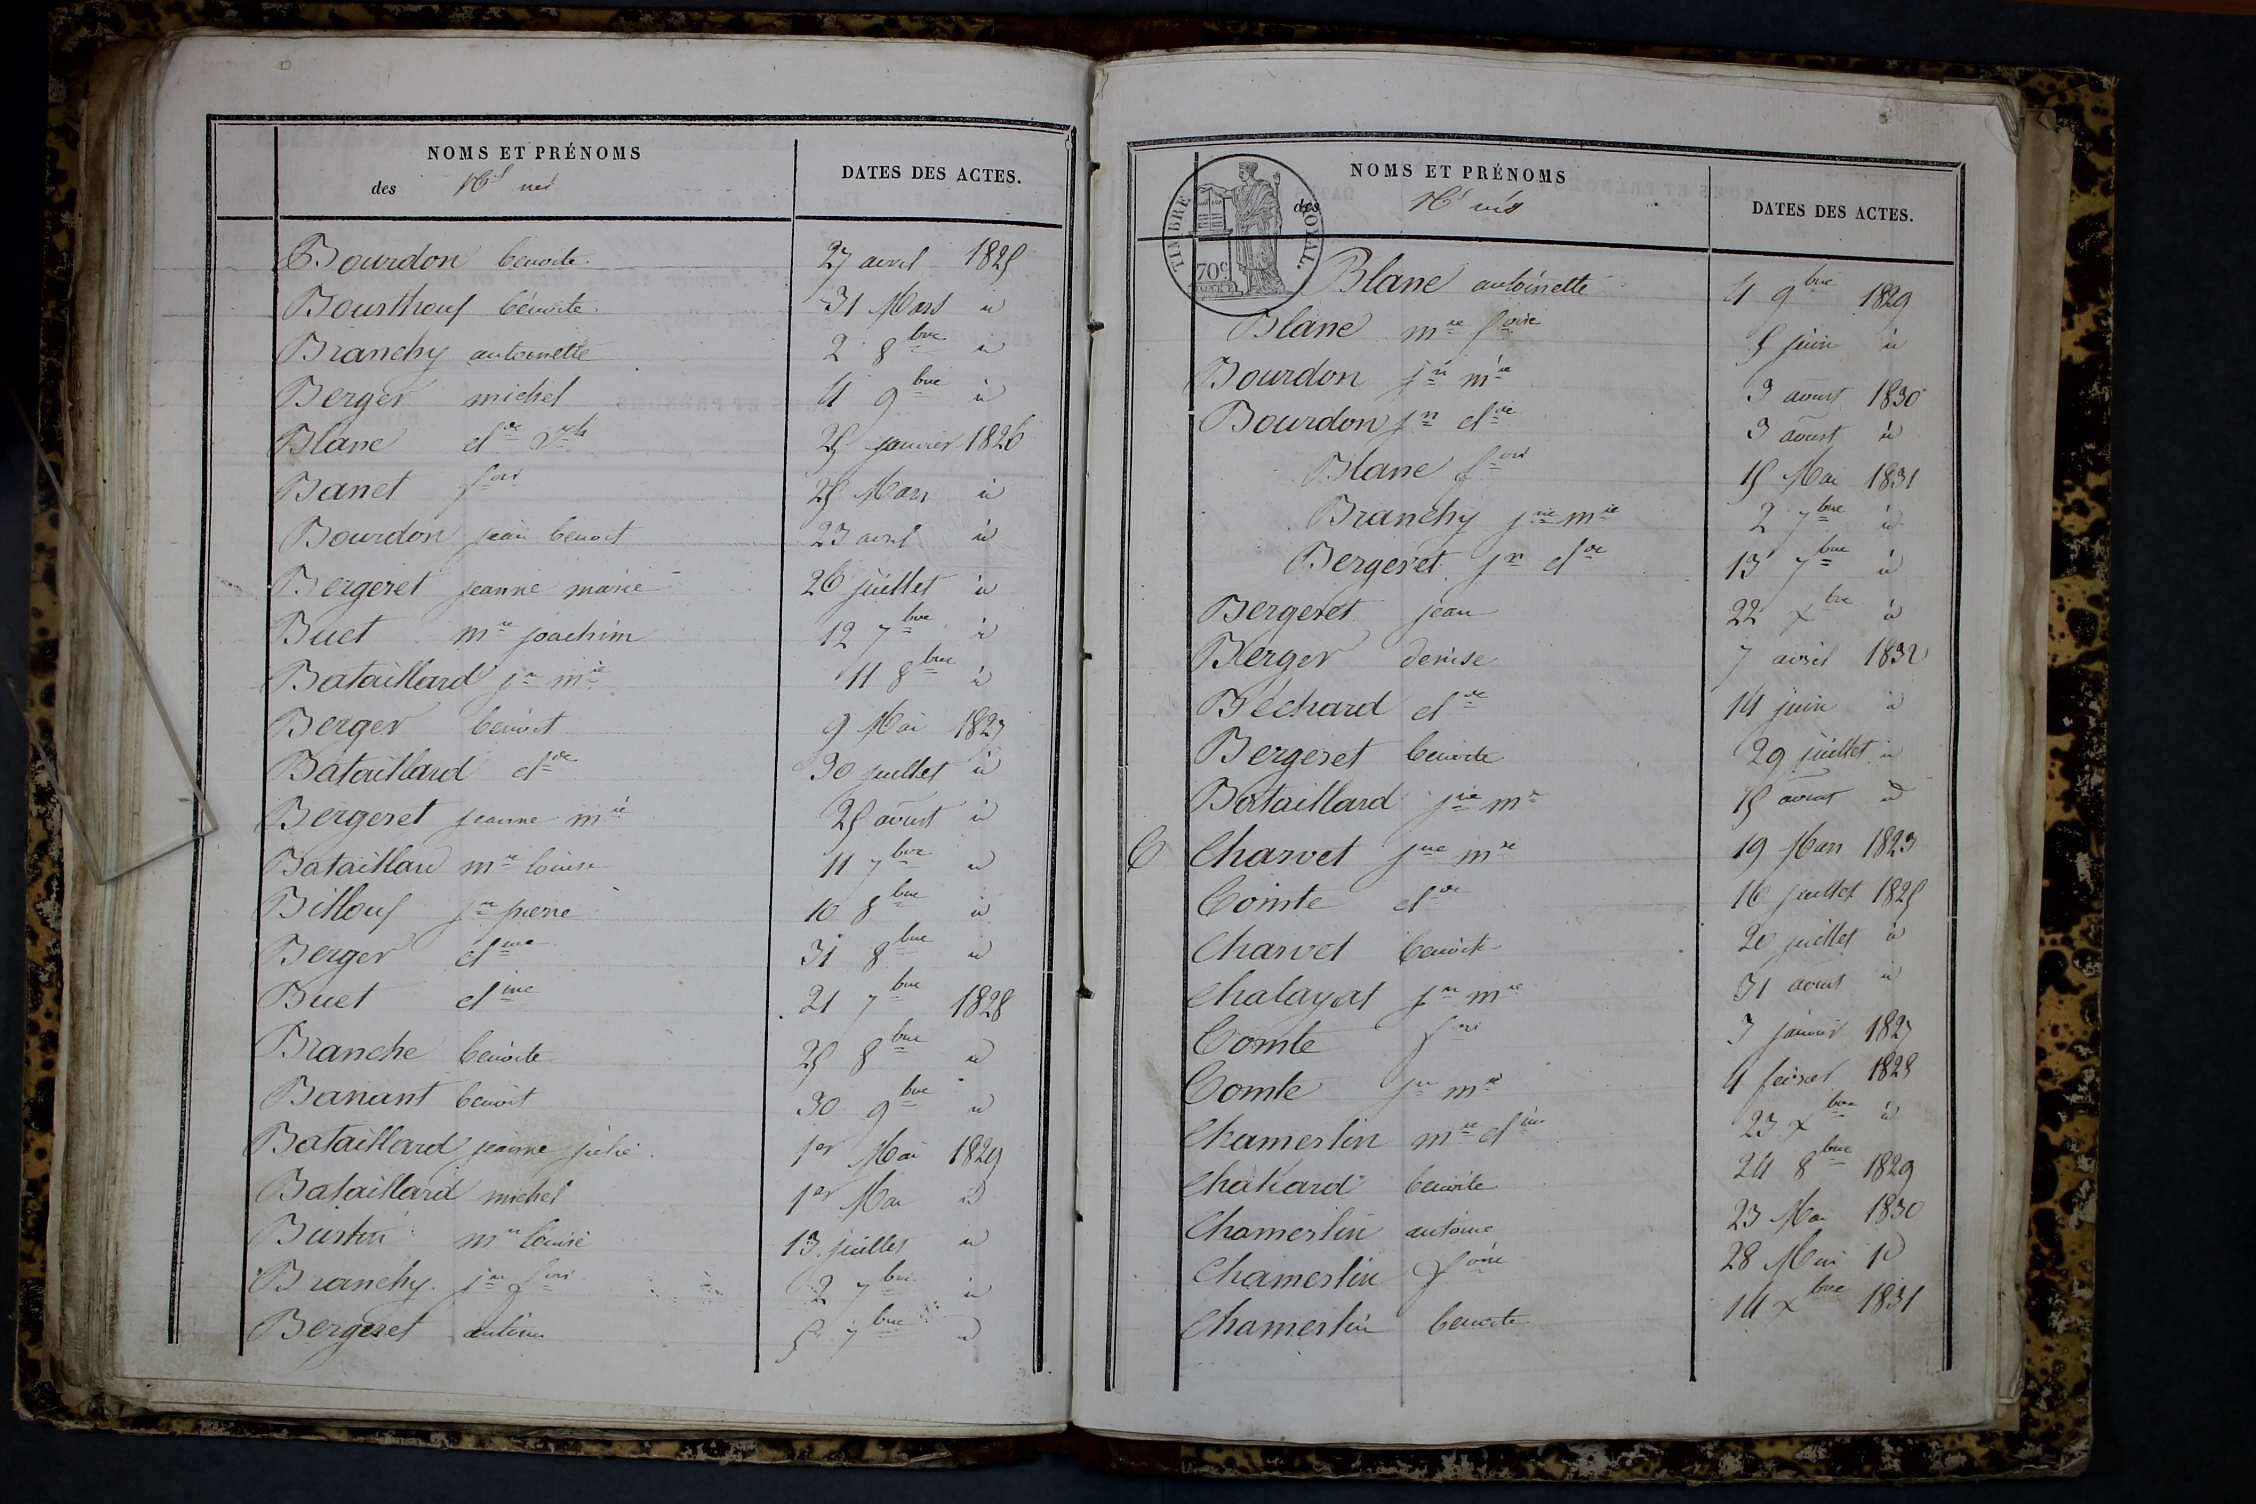 NOMS ET PRÉNOMS
des Nés nés
DATES DES ACTES.
Bourdon benoite 27 avril 1825
Bousthouf bénoite 31 Mars id
Branchy antoinette 2 8bre id
Berger michel 4 9bre id
Blanc clde 25 janvier 1826
Banet fois 25 Mars id
Bourdon jean benoit 23 avril id
Bergeret jeanne marie 26 juillet id
Buet mie joachim 12 7bre id
Bataillard jn mie 11 8bre id
Berger benoit 9 Mai 1827
Bataillard clde 30 juillet id
Bergeret jeanne mie 25 aoust id
Bataillard mie louise 11 7bre id
Billouf jn pierre 10 8bre id
Berger cline 31 8bre id
Buet cline 21 7bre 1828
Branche benoite 25 8bre id
Banant benoit 30 9bre id
Bataillard jeanne julie 1er Mai 1829
Bataillard michel 1er Mai id
Bustin mie louise 13 juillet id
Branchy jn fois 2 7bre id
Bergeret antoine 5 7bre id
TIMBRE ROYAL.
70c
NOMS ET PRÉNOMS
des Nés nés
DATES DES ACTES.
Blanc antoinette 4 9bre 1829
Blanc mie foise 5 juin id
Bourdon jn mie 3 aoust 1830
Bourdon jn clde 3 aoust id
Blanc fois 15 Mai 1831
Branchy jne mie 2 7bre id
Bergeret jn clde 13 7bre id
Bergeret jean 22 xbre id
Berger denise 7 avril 1832
Béchard clde 14 juin id
Bergeret benoite 29 juillet id
Bataillard jne mie 15 aoust id
C Charvet jne mie 19 Mars 1823
Comte clde 16 juillet 1825
Charvet benoite 20 juillet id
Chalayat jn mie 31 aoust id
Comte fois 3 janvier 1827
Comte jn mie 4 février 1828
Chamerlin mie cline 23 xbre id
Chakard benoite 24 8bre 1829
Chamerlin antoine 23 Mai 1830
Chamerlin foise 28 Mai id
Chamerlin benoite 14 xbre 1831